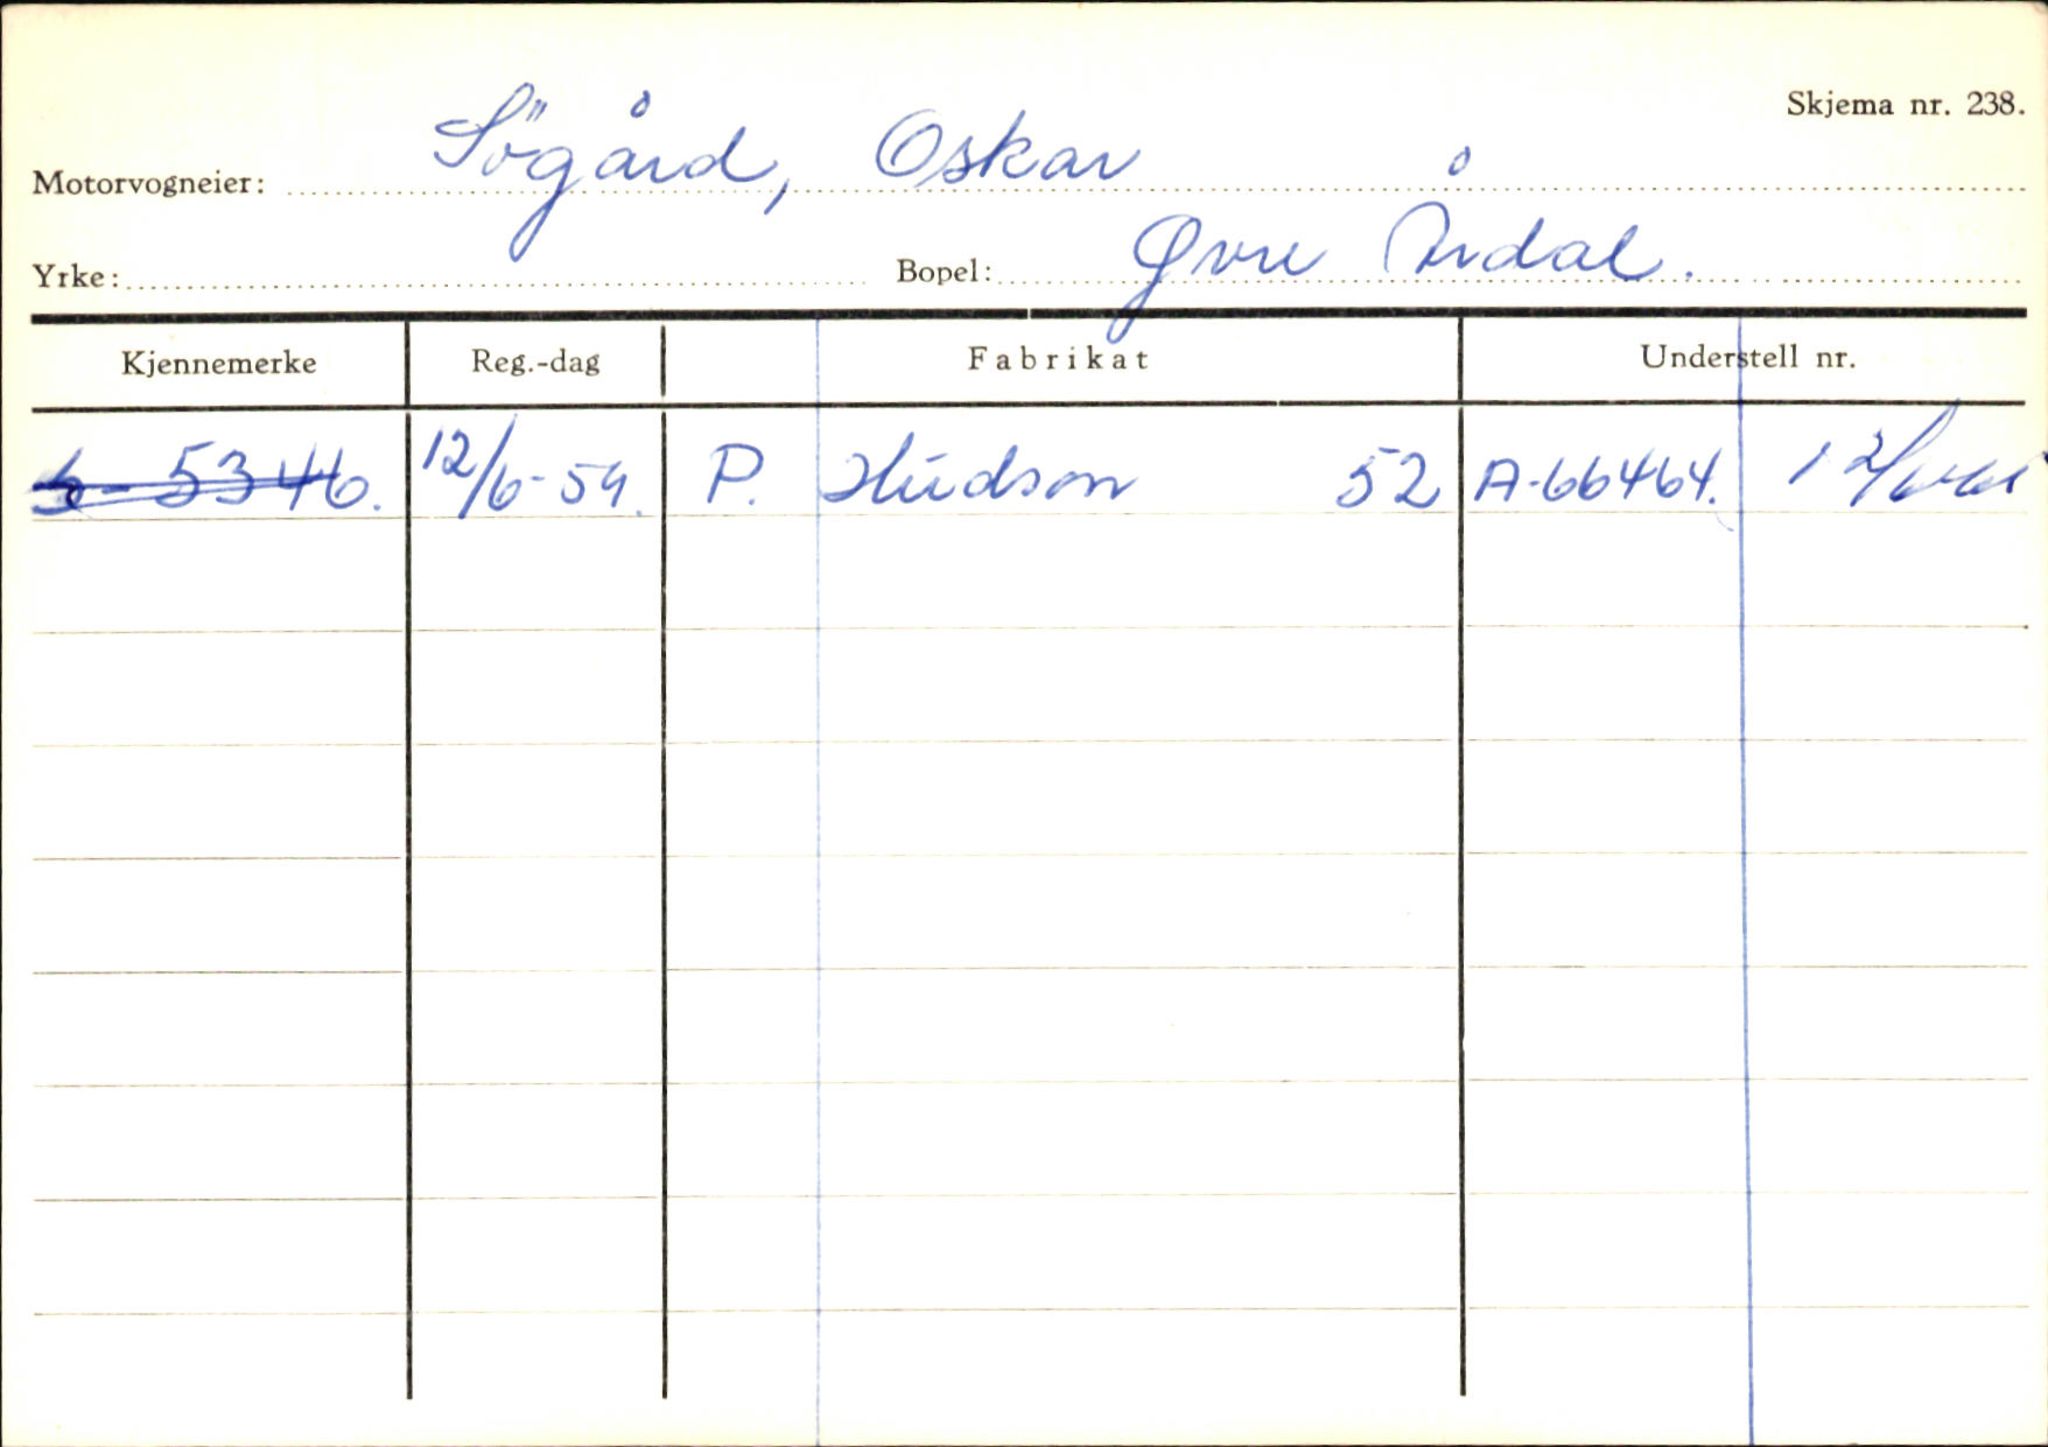 Skjema nr. 238.
Motorvogneier: Sögård, Oskar
Yrke: Bopel: Øvre Årdal.
Kjennemerke Reg.-dag Fabrikat Understell nr.
S-5346. 12/6-59. P. Hudson 52 A-66464.